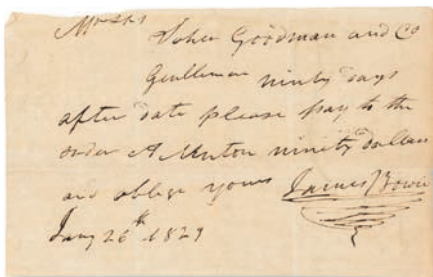 Messrs
John Goodman and Co
Gentlemen ninty days
after date please pay to the
order A Minton ninity dollars
and oblige yours James Bowie
Jany 26th 1829